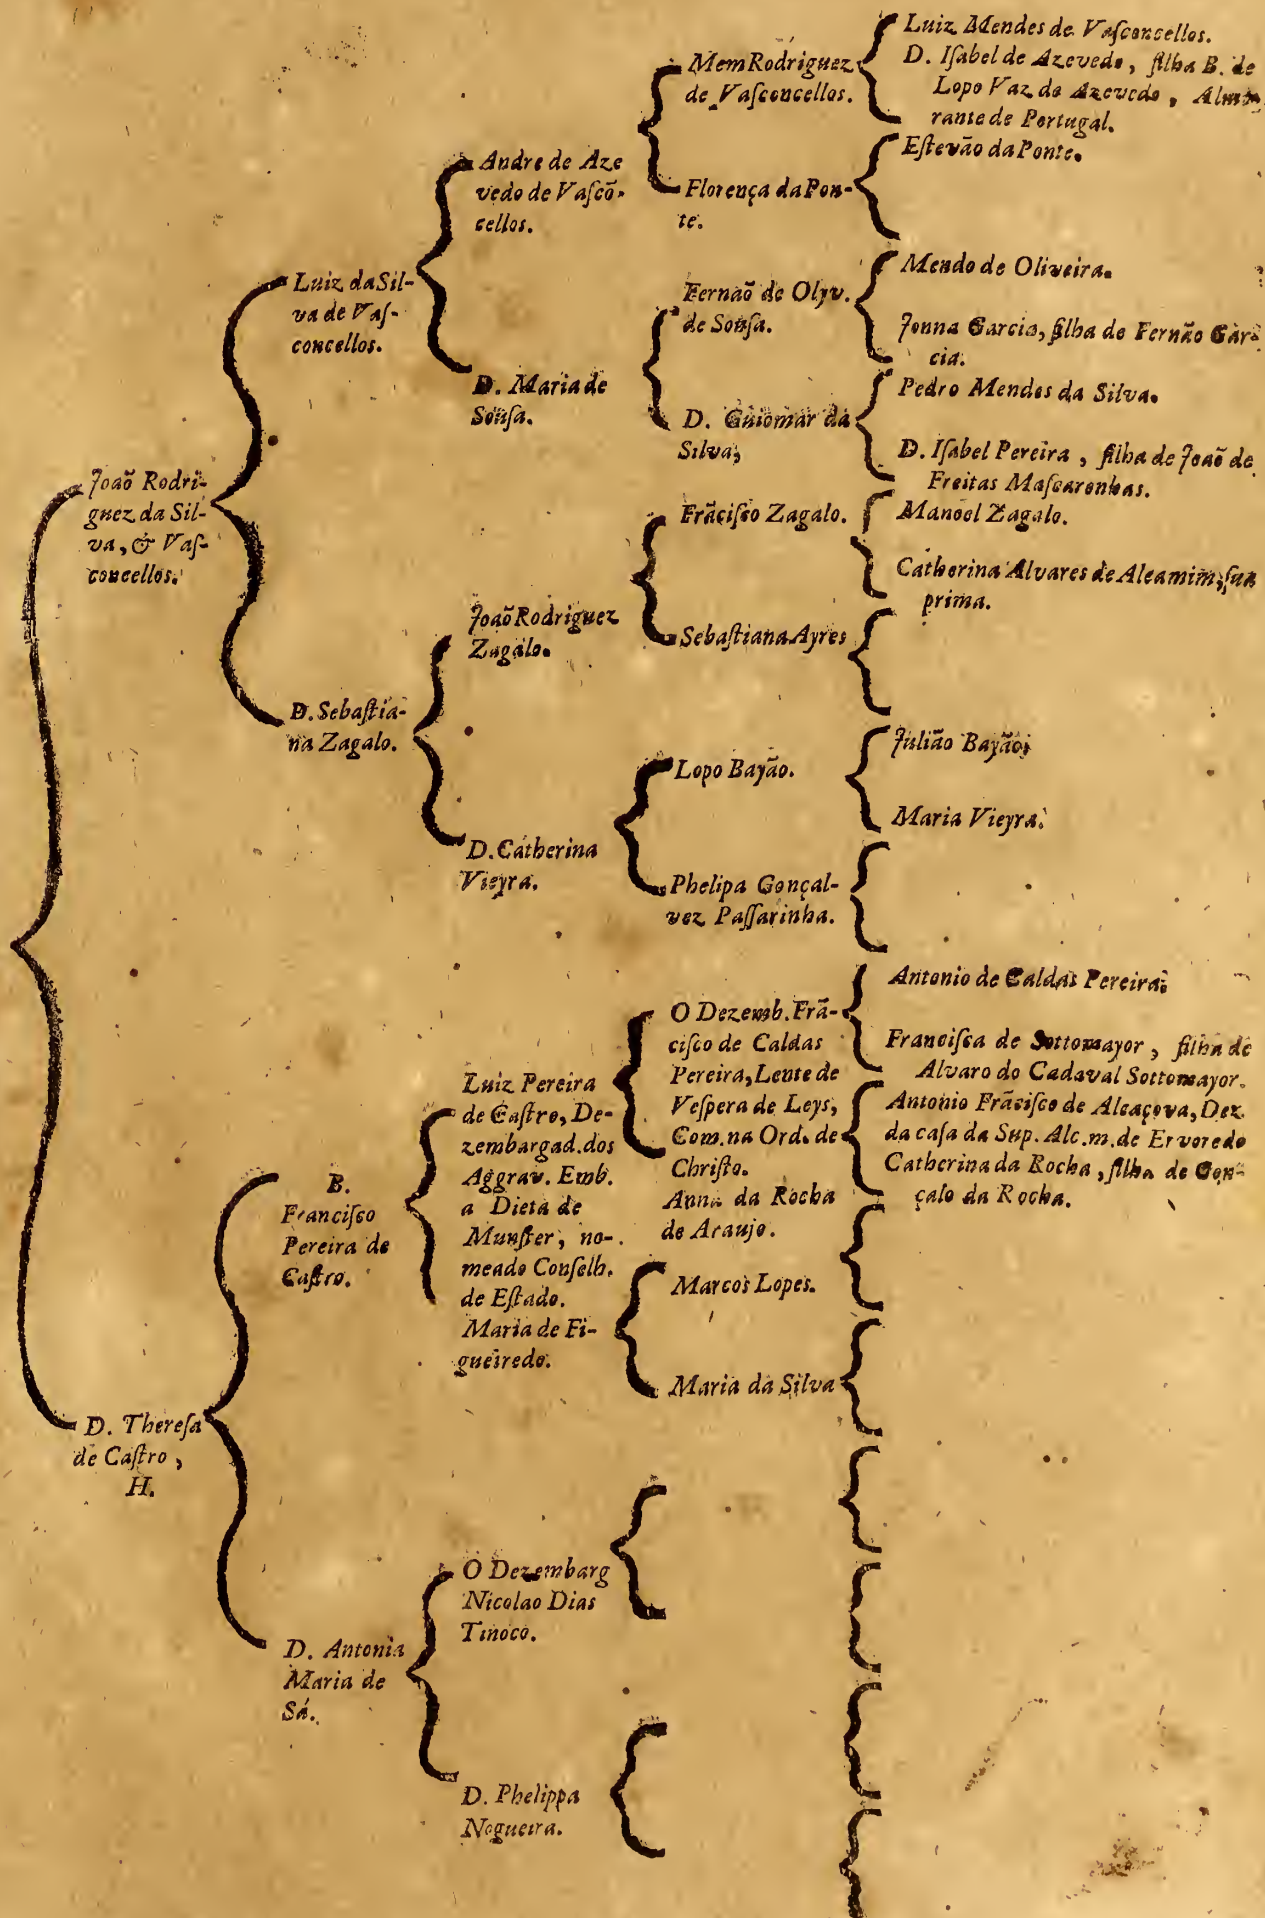 Joaõ Rodri-
guez da Sil-
va, & Vaſ-
concellos.
D. Thereſa
de Caſtro,
H.
Luiz da Sil-
va de Vaſ-
concellos.
D. Sebaſtia-
na Zagalo.
B.
Franciſco
Pereira de
Caſtro.
D. Antonia
Maria de
Sá.
Andre de Aze
vedo de Vaſcõ-
cellos.
D. Maria de
Souſa.
Joaõ Rodriguez
Zagalo.
D. Catherina
Vieyra.
Luiz Pereira
de Caſtro, De-
zembargad. dos
Aggrav. Emb.
a Dieta de
Munſter, no-
meado Conſelh.
de Eſtado.
Maria de Fi-
gueiredo.
O Dezembarg
Nicolao Dias
Tinoco.
D. Phelippa
Nogueira.
Mem Rodriguez
de Vaſconcellos.
Florença da Pon-
te.
Fernaõ de Olyv.
de Souſa.
D. Guiomar da
Silva,
Frãciſco Zagalo.
Sebaſtiana Ayres
Lopo Bayão.
Phelipa Gonçal-
vez Paſſarinha.
O Dezemb. Frã-
ciſco de Caldas
Pereira, Lente de
Veſpera de Leys,
Com. na Ord. de
Chriſto.
Anna da Rocha
de Araujo.
Marcos Lopes.
Maria da Silva
Luiz Mendes de Vaſconcellos.
D. Iſabel de Azevedo, filha B. de
Lopo Vaz de Azevedo, Almi-
rante de Portugal.
Eſtevão da Ponte.
Mendo de Oliveira.
Jonna Garcia, filha de Fernão Gar-
cia.
Pedro Mendes da Silva.
D. Iſabel Pereira, filha de Joaõ de
Freitas Maſcarenhas.
Manoel Zagalo.
Catherina Alvares de Aleamim, ſua
prima.
Julião Bayão;
Maria Vieyra.
Antonio de Caldas Pereira.
Franciſca de Sottomayor, filha de
Alvaro do Cadaval Sottomayor.
Antonio Frãciſco de Alcaçova, Dez.
da caſa da Sup. Alc. m. de Ervoredo
Catherina da Rocha, filha de Gon-
çalo da Rocha.